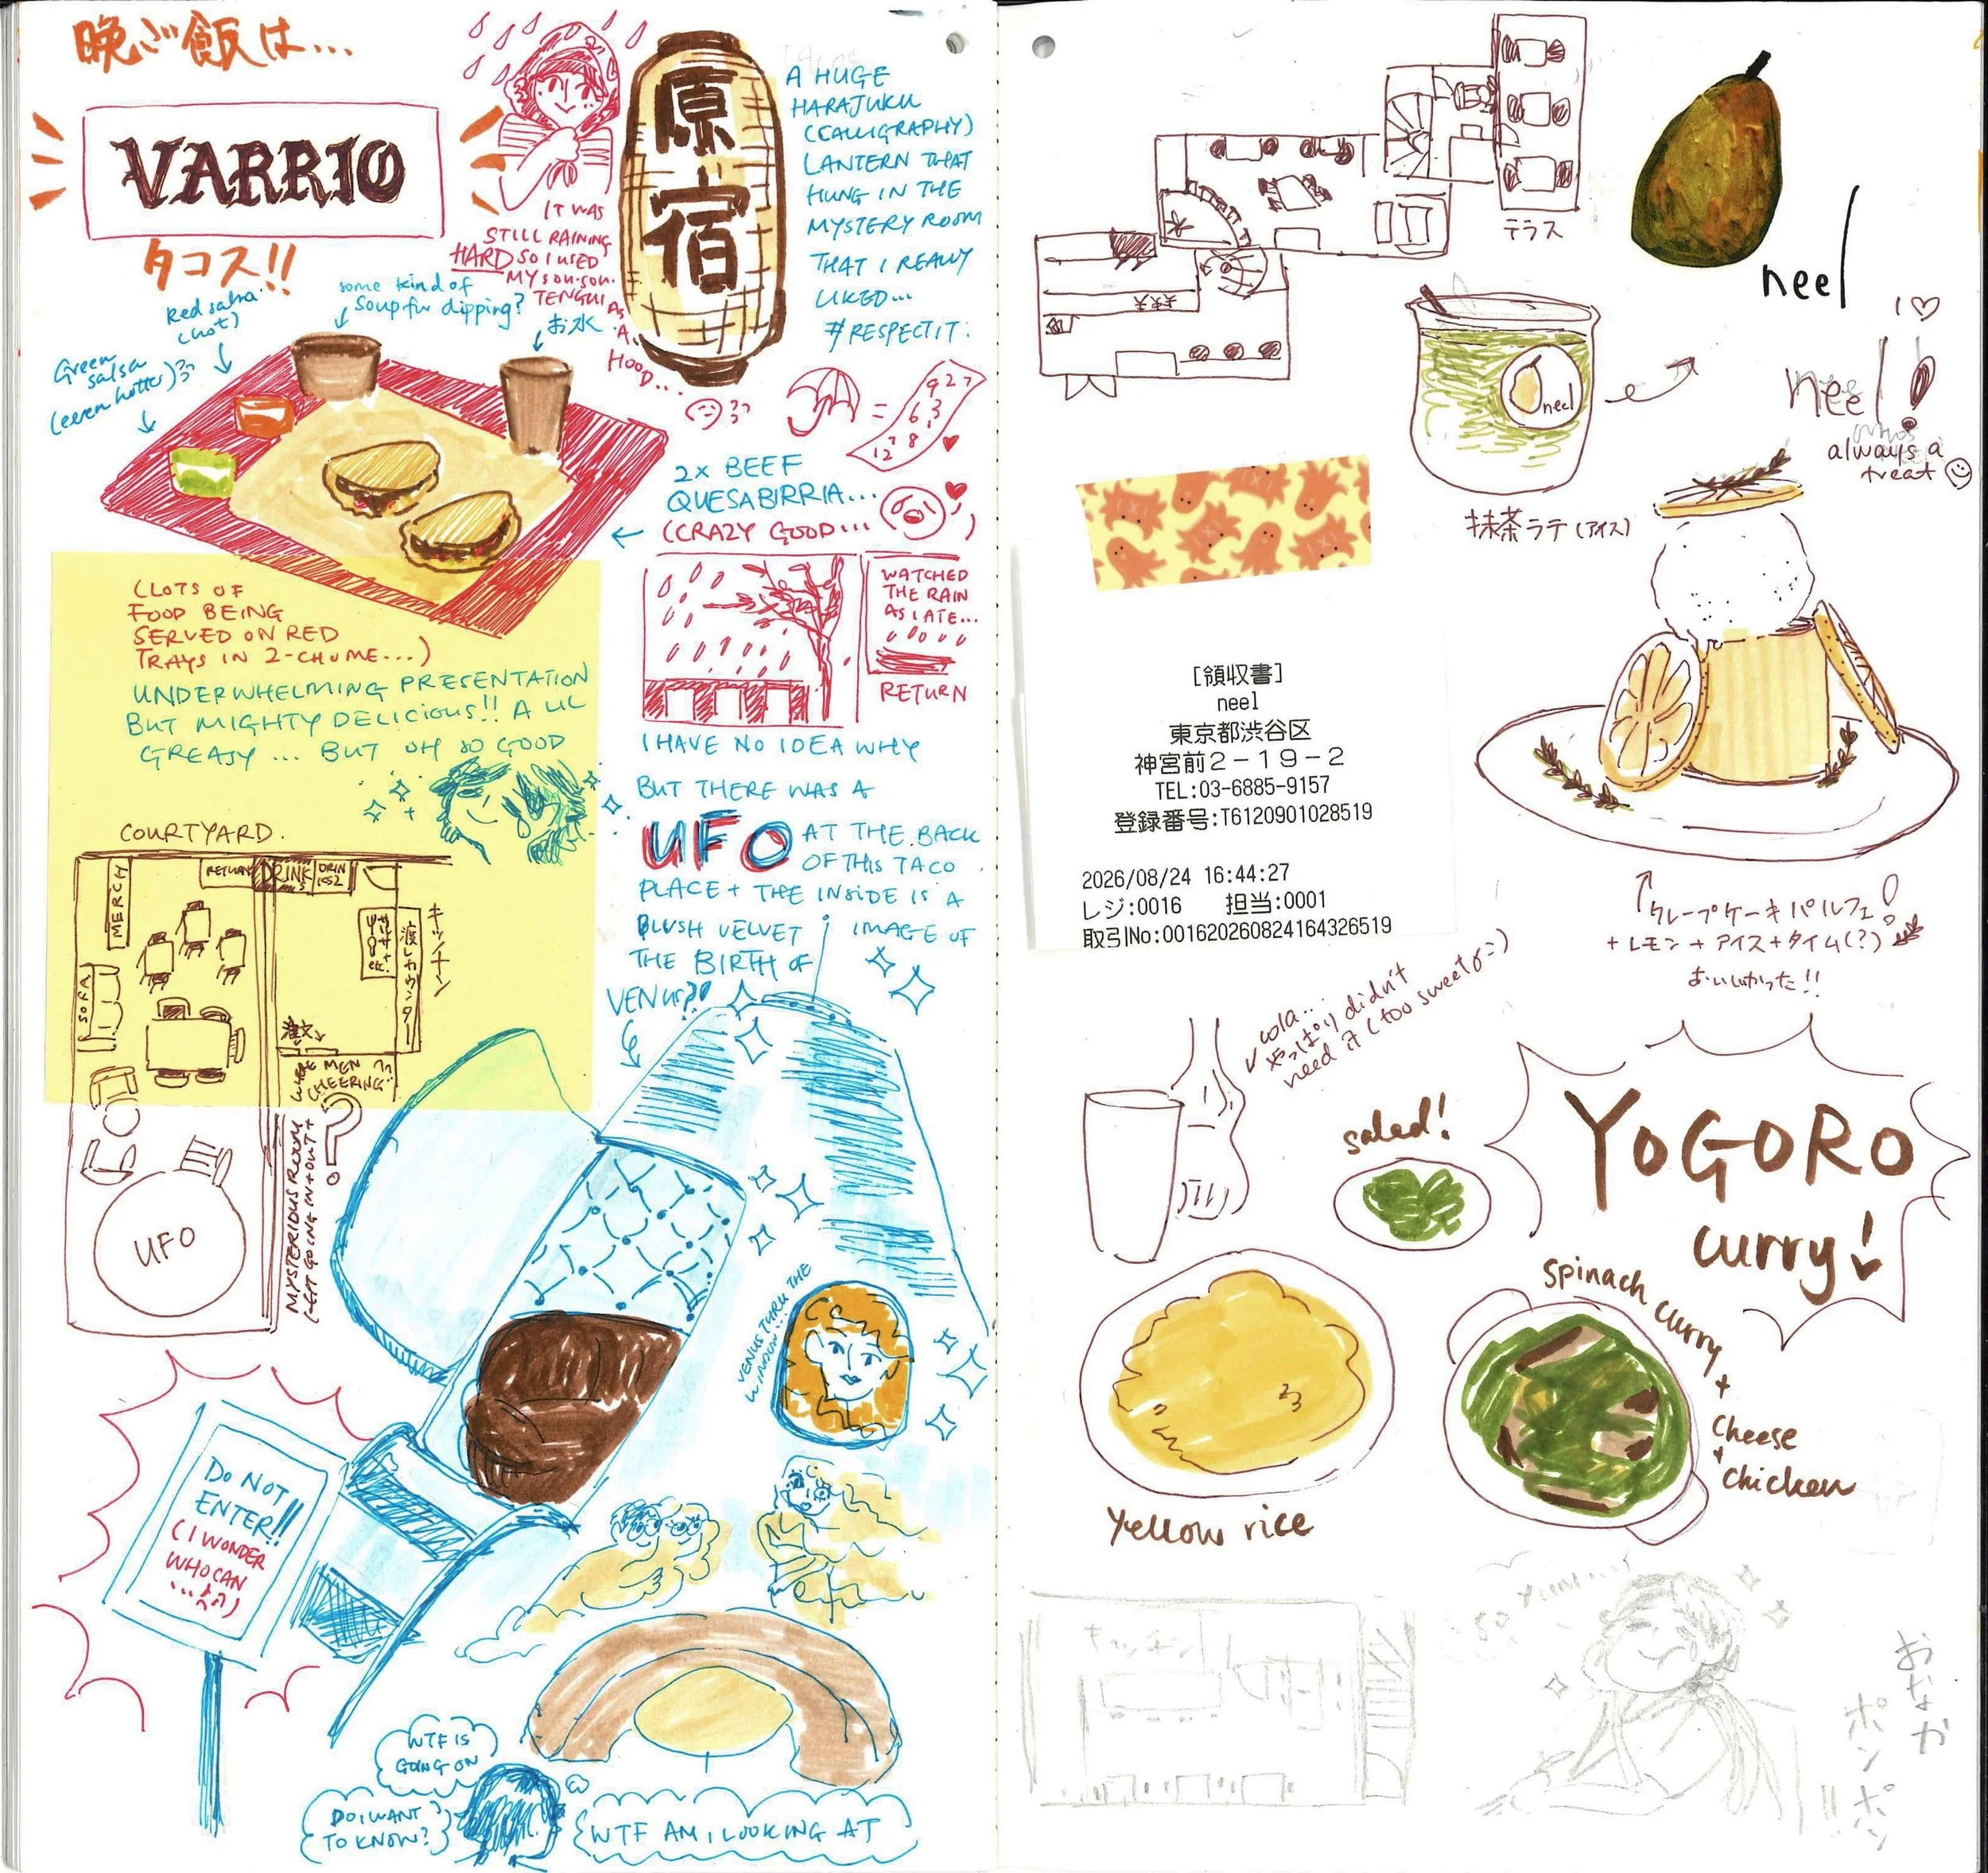 晩ご飯は...
VARRIO
タコス!!
IT WAS
STILL RAINING
HARD SO I USED
MY SOU·SOU
TENGUI
AS
A
HOOD..
原
宿
A HUGE
HARAJUKU
(CALLIGRAPHY)
LANTERN THAT
HUNG IN THE
MYSTERY ROOM
THAT I REALLY
LIKED...
#RESPECTIT.
Red salsa
(hot)
some kind of
soup for dipping?
お水
Green
salsa
(even hotter)
=
9 27
6 3
12 8
2x BEEF
QUESABIRRIA...
(CRAZY GOOD... )
WATCHED
THE RAIN
AS I ATE...
RETURN
(LOTS OF
FOOD BEING
SERVED ON RED
TRAYS IN 2-CHOME...)
UNDERWHELMING PRESENTATION
BUT MIGHTY DELICIOUS!! A LIL
GREASY ... BUT OH SO GOOD
I HAVE NO IDEA WHY
BUT THERE WAS A
UFO AT THE BACK
OF THIS TACO
PLACE + THE INSIDE IS A
PLUSH VELVET IMAGE OF
THE BIRTH OF
VENUS?!
COURTYARD.
MERCH
RETURN
DRINKS
DRINKS2
キッチン
渡しカウンター
SOFA
注文
WHERE MEN
CHEERING
MYSTERIOUS ROOM
KEPT GOING IN + OUT +
?
UFO
VENUS THRU THE
WINDOW!!
DO NOT
ENTER!!
(I WONDER
WHO CAN
...
WTF IS
GOING ON
DO I WANT
TO KNOW?
WTF AM I LOOKING AT
テラス
neel
neel
I ♡
neel!
always a
treat
抹茶ラテ (アイス)
[領収書]
neel
東京都渋谷区
神宮前2-19-2
TEL:03-6885-9157
登録番号:T6120901028519
2026/08/24 16:44:27
レジ:0016 担当:0001
取引No:001620260824164326519
クレープケーキパルフェ!
+ レモン + アイス + タイム(?)
おいしかった!!
cola...
やっぱり didn't
need it (too sweet)
salad!
YOGORO
curry!
Spinach curry
+
Cheese
+
Chicken
Yellow rice
キッチン
so yum...
おなか
ポンポン!!